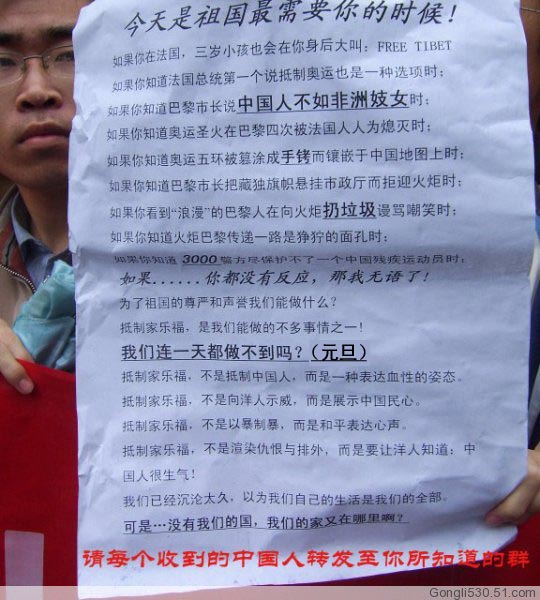 今天是祖国最需要你的时候！
如果你在法国，三岁小孩也会在你身后大叫：FREE TIBET
如果你知道法国总统第一个说抵制奥运也是一种选项时；
如果你知道巴黎市长说中国人不如非洲妓女时；
如果你知道奥运圣火在巴黎四次被法国人人为熄灭时；
如果你知道奥运五环被篡涂成手铐而镶嵌于中国地图上时；
如果你知道巴黎市长把藏独旗帜悬挂市政厅而拒迎火炬时；
如果你看到“浪漫”的巴黎人在向火炬扔垃圾谩骂嘲笑时；
如果你知道火炬巴黎传递一路是狰狞的面孔时；
如果你知道 3000 警方尽保护不了一个中国残疾运动员时；
如果......你都没有反应，那我无语了！
为了祖国的尊严和声誉我们能做什么？
抵制家乐福，是我们能做的不多事情之一！
我们连一天都做不到吗？（元旦）
抵制家乐福，不是抵制中国人，而是一种表达血性的姿态。
抵制家乐福，不是向洋人示威，而是展示中国民心。
抵制家乐福，不是以暴制暴，而是和平表达心声。
抵制家乐福，不是渲染仇恨与排外，而是要让洋人知道：中
国人很生气！
我们已经沉沦太久，以为我们自己的生活是我们的全部。
可是…没有我们的国，我们的家又在哪里啊？
请每个收到的中国人转发至你所知道的群
Gongli530.51.com